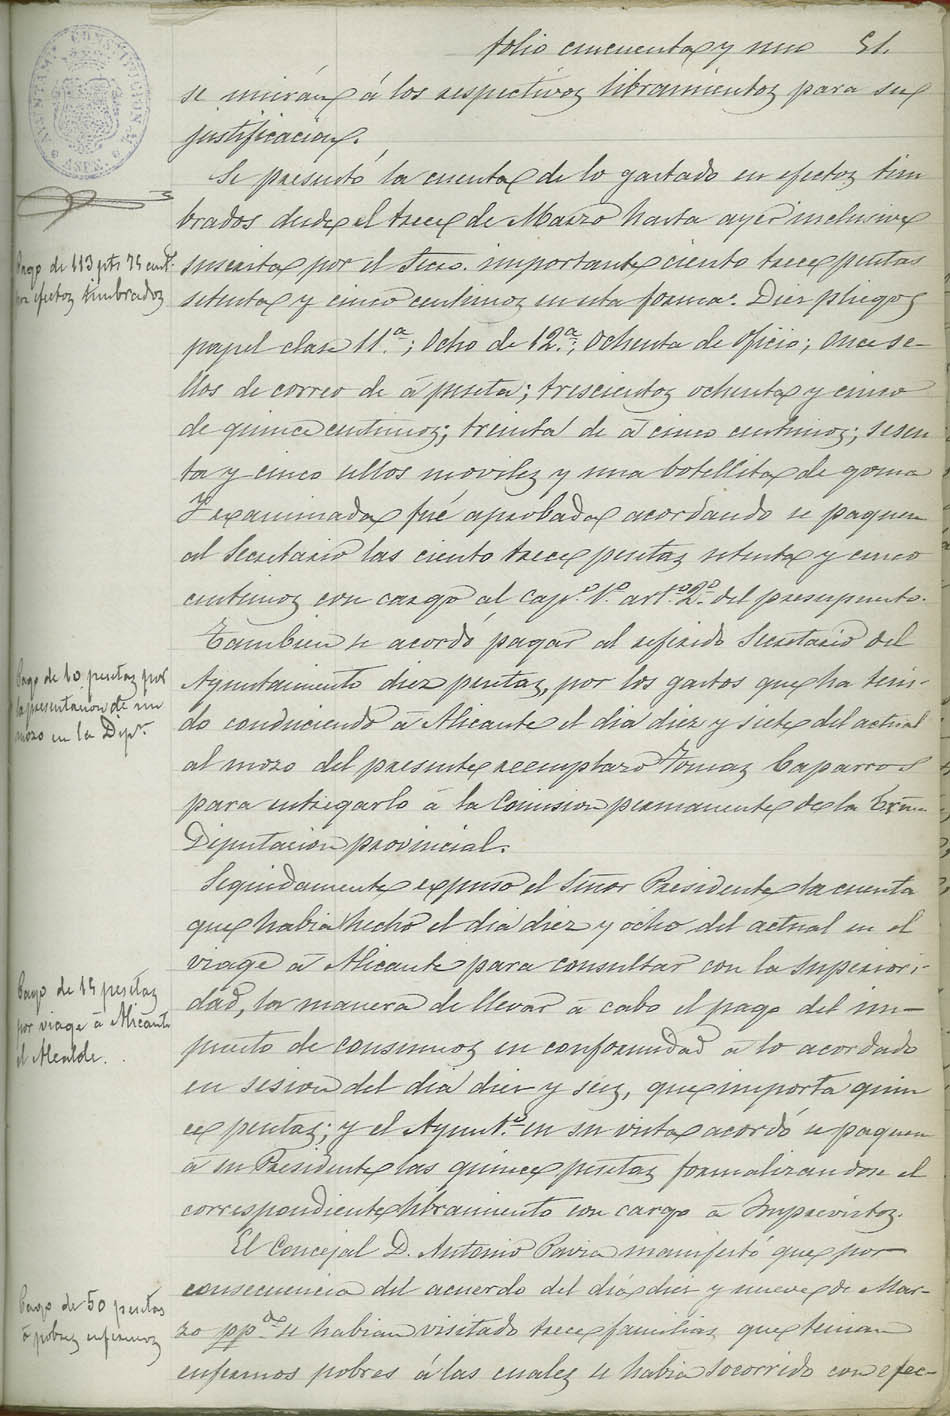 folio cincuenta y uno 51.
se unirán á los respectivos libramientos para su
justificacion.
Se presentó la cuenta de lo gastado en efectos tim
brados desde el trece de Marzo hasta ayer inclusive
suscrita por el Secro. importante ciento trece pesetas
setenta y cinco centimos en esta forma: Diez pliegos
papel clase 11.ª; Ocho de 12.ª; Ochenta de oficio; Once se-
llos de correo de á peseta; trescientos ochenta y cinco
de quince centimos; treinta de á cinco centimos; sesen
ta y cinco sellos moviles y una botellita de goma
Y examinada fué aprobada acordando se paguen
al Secretario las ciento trece pesetas setenta y cinco
centimos con cargo al cap.º 1.º art.º 2.º del presupuesto.
Tambien se acordó pagar al referido Secretario del
Ayuntamiento diez pesetas, por los gastos que ha teni-
do conduciendo á Alicante el dia diez y siete del actual
al mozo del presente reemplazo Tomas Caparros
para entregarlo á la Comision permanente de la Exma
Diputacion provincial.
Seguidamente expuso el Señor Presidente la cuenta
que habia hecho el dia diez y ocho del actual en el
viage á Alicante para consultar con la Superiori-
dad, la manera de llevar á cabo el pago del im-
puesto de consumos en conformidad á lo acordado
en sesion del dia diez y seis, que importa quin
ce pesetas; y el Ayunt.º en su vista acordó se paguen
á su Presidente las quince pesetas formalizandose el
correspondiente libramiento con cargo á Imprevistos.
El Concejal D. Antonio Pavia manifestó que por
consecuencia del acuerdo del dia diez y nueve de Mar-
zo pp.do se habian visitado trece familias que tenian
enfermos pobres á las cuales se habia socorrido con efec-
AYUNTAM. CONSTITUCION
ASPE
Pago de 113 pts 75 cent.
por efectos timbrados
Pago de 10 pesetas por
la presentacion de un
mozo en la Dip.n
Pago de 15 pesetas
por viage á Alicante
el Alcalde.
Pago de 50 pesetas
á pobres enfermos